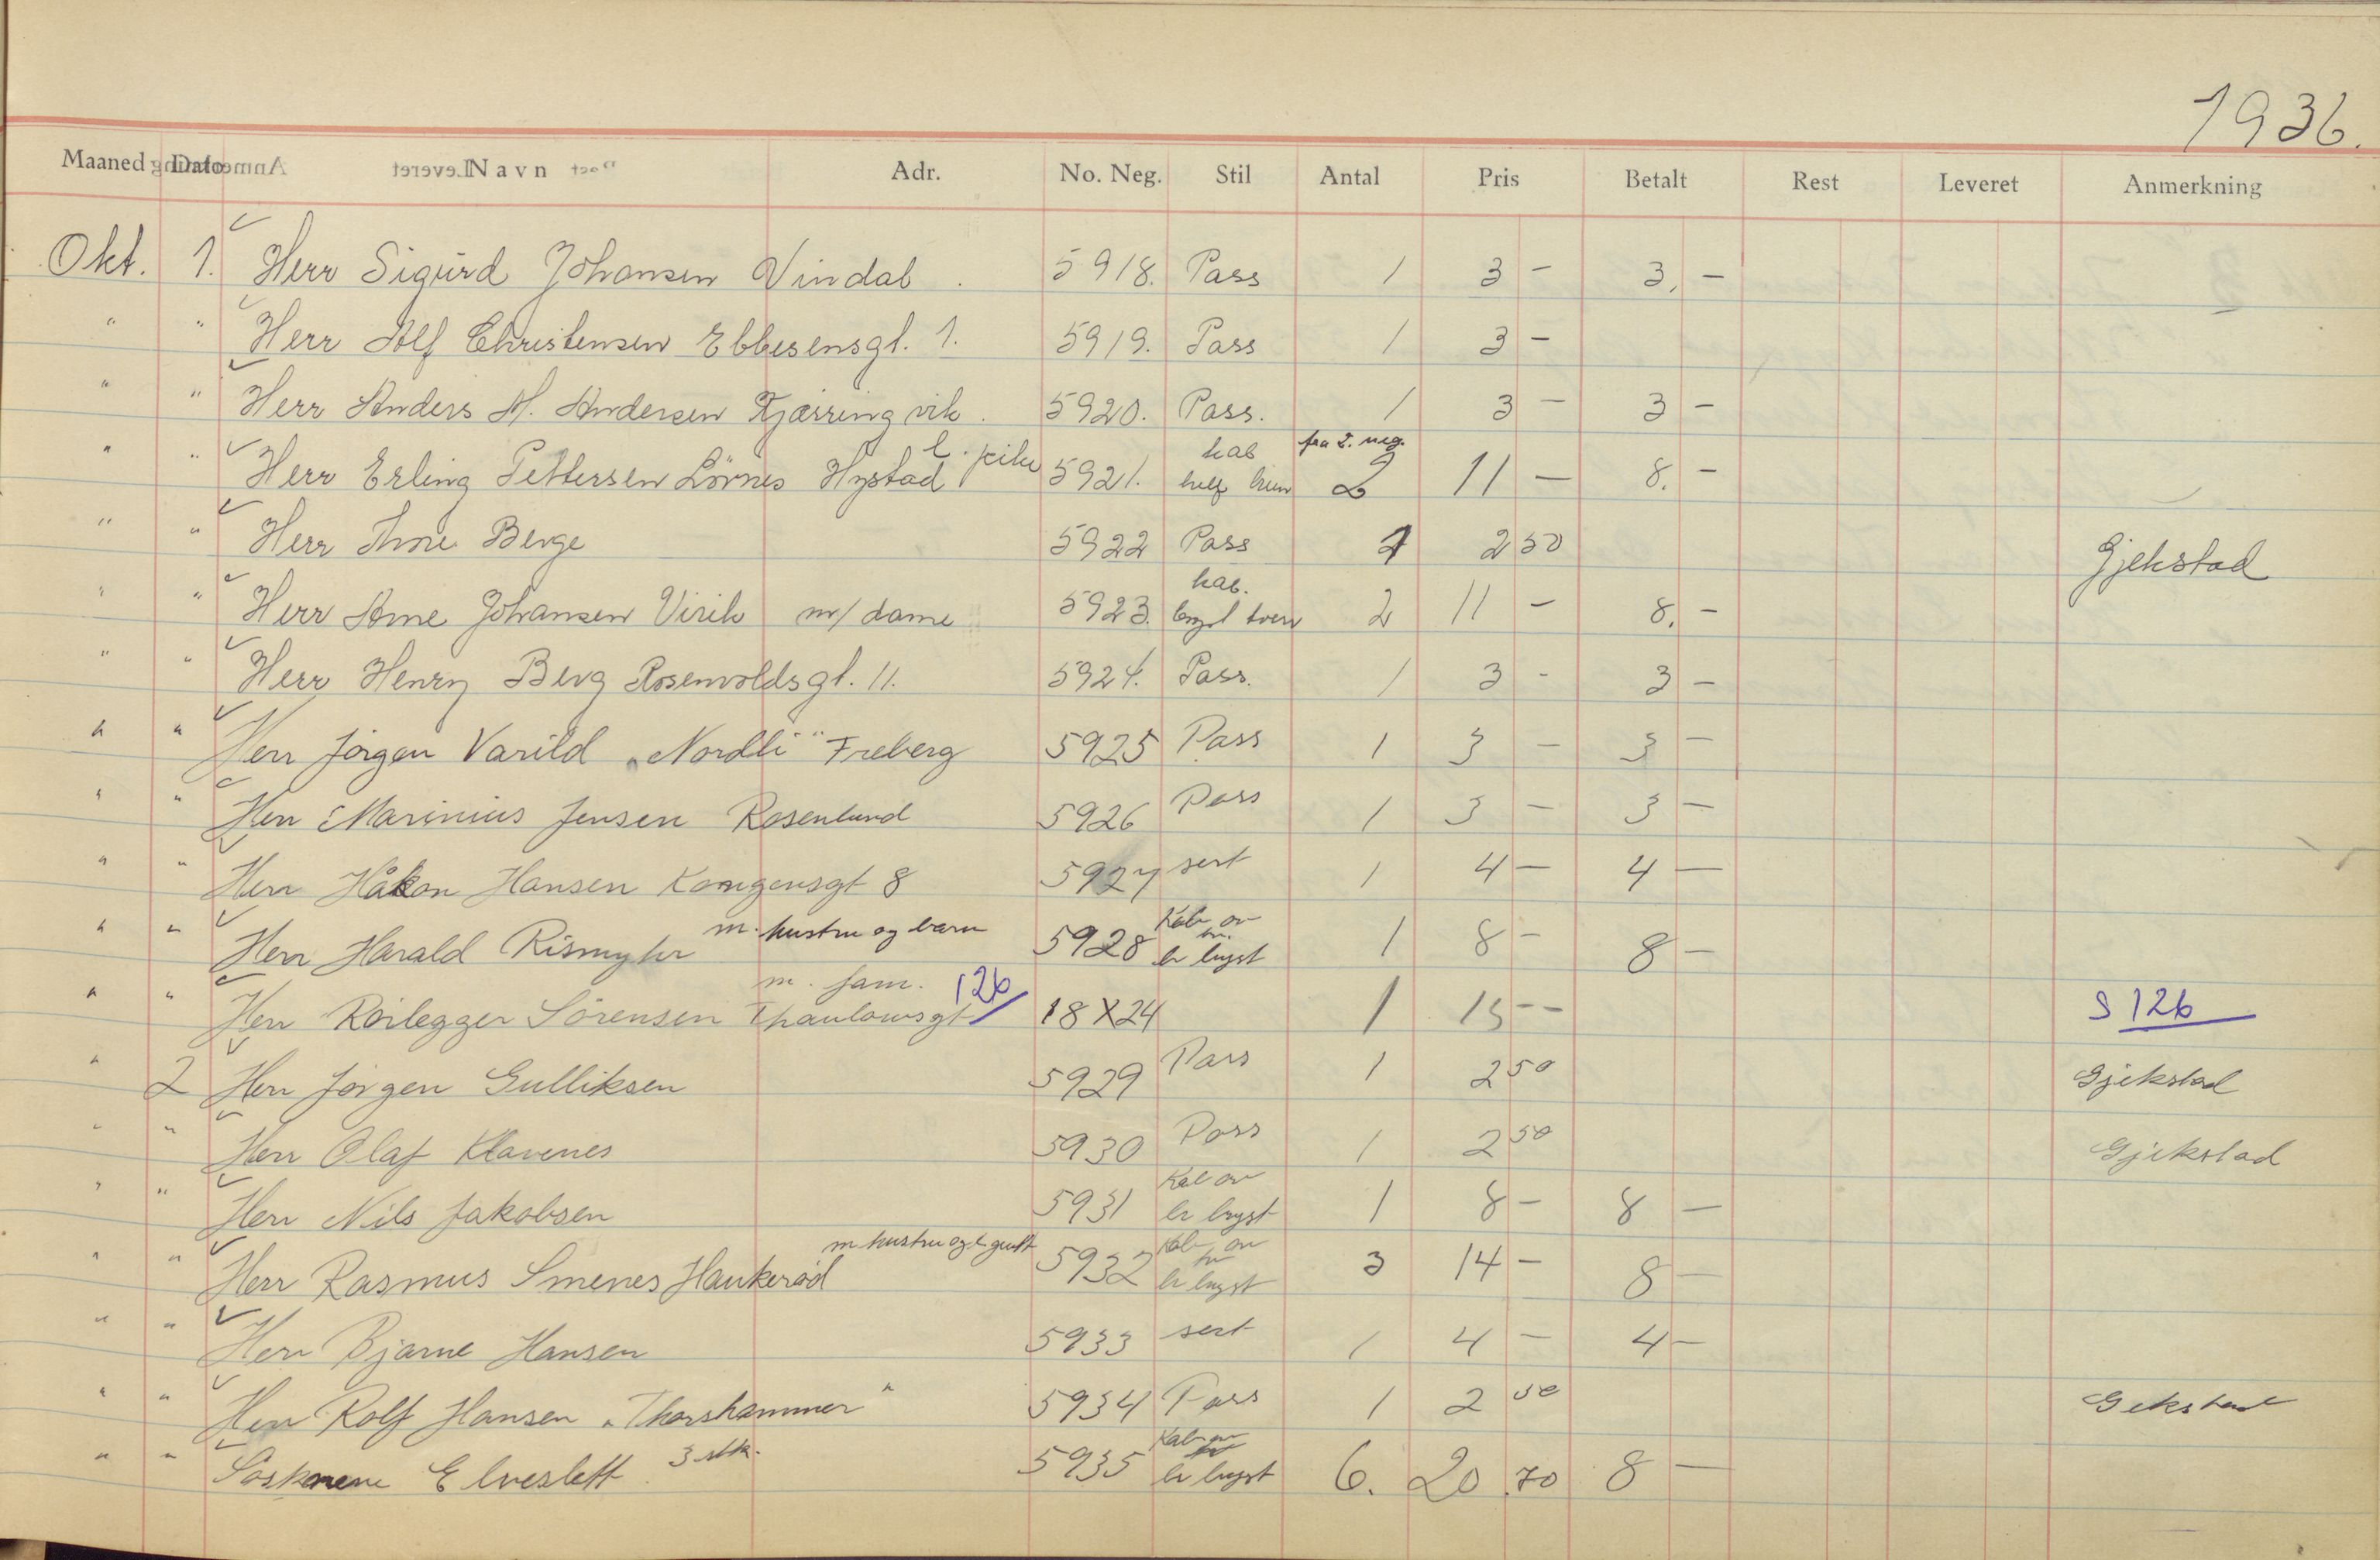 1936.
Maaned Dato Navn Adr. No. Neg. Stil Antal Pris Betalt Rest Leveret Anmerkning
Okt. 1. Herr Sigurd Johansen Vindal. 5918. Pass 1 3 - 3, -
" " Herr Alf Christensen Ebbesensgt. 1. 5919. Pass 1 3 -
" " Herr Anders M. Andersen Kjærringvik. 5920. Pass. 1 3 - 3 -
" " Herr Erling Pettersen Lörnes Hystad 5921. kab 2 11 - 8. -
" " Herr Arne Berge 5922 Pass 1 2 50 Gjekstad
" " Herr Arne Johansen Virik m/ dame 5923. kab. bryst tverr 2 11 - 8. -
" " Herr Henry Berg Rosenvoldsgt. 11. 5924. Pass. 1 3 - 3 -
" " Herr Jörgen Varild "Nordli" Freberg 5925 Pass 1 3 - 3 -
" " Herr Marinius Jensen Rosenlund 5926 Pass 1 3 - 3 -
" " Herr Håkon Hansen Kongensgt 8 5927 sert 1 4 - 4 -
" " Herr Harald Rismyhr m. hustru og barn 5928 Kab br bryst 1 8 - 8 -
" " Herr Rörlegger Sörensen m. fam. Thaulowsgt 126 18 X 24 1 15 - - S 126
" 2 Herr Jörgen Gulliksen 5929 Pass 1 2 50 Gjekstad
" " Herr Olaf Klavenes 5930 Pass 1 2 50 Gjekstad
" " Herr Nils Jakobsen 5931 Kab br bryst 1 8 - 8 -
" " Herr Rasmus Smenes Haukeröd m hustru og l. gutt 5932 Kab br bryst 3 14 - 8 -
" " Herr Bjarne Hansen 5933 sert 1 4 - 4 -
" " Herr Rolf Hansen "Thorshammer" 5934 Pass 1 2 50 Gekstad
" " Söskenene Elveslett 3 stk. 5935 Kab br bryst 6. 20 70 8 -